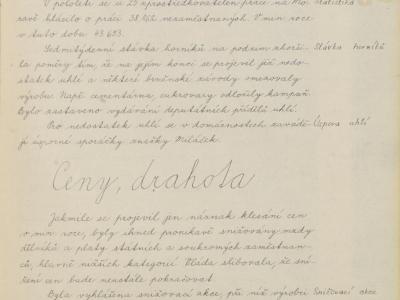 V pololetí se u 23 zprostředkovatelen práce na Mo- Statistika
ravě hlásilo o práci nezaměstnaných. V min. roce
v tuto dobu 43.653.
Sedmitýdenní stávka horníků na podzim zhorši- Stávka horníků
la poměry tím, že na jejím konci se projevil již nedo-
statek uhlí a některé brněnské závody omezovaly
výrobu. Např. cementárna, cukrovary odložily kampaň.
Bylo zastaveno vydávání deputátních přídělů uhlí.
Pro nedostatek uhlí se v domácnostech zavádě- Úspora uhlí
jí úsporné sporáčky značky Miláček.
Ceny, drahota
Jakmile se projevil jen náznak klesání cen
v min. roce, byly ihned pronikavě snižovány mzdy
dělníků a platy státních a soukromých zaměstnan-
ců, hlavně nižších kategorií. Vláda slibovala, že sní-
žení cen bude neustále pokračovat.
Byla vyhlášena snižovací akce, při níž výrobci Snižovací akce